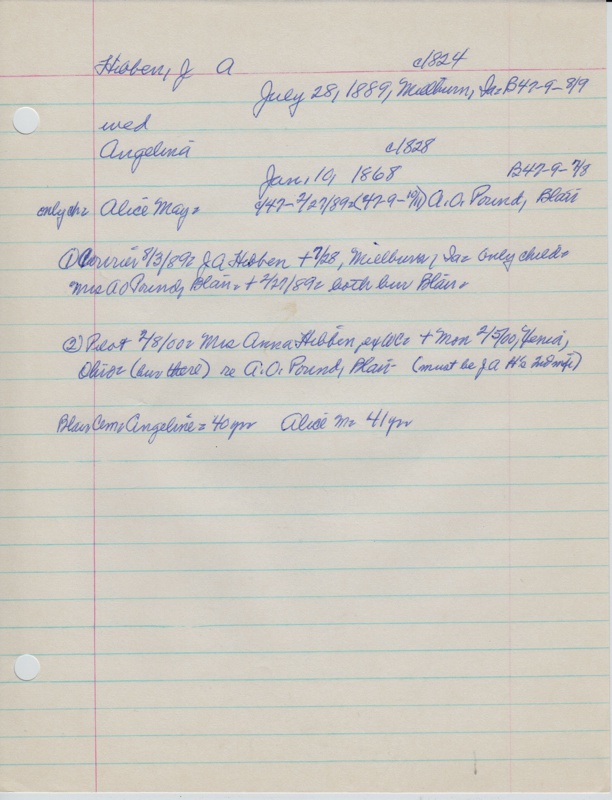 Hibben, J A c1824
July 28, 1889, Millburn, Ia= B47-9-8/9
wed
Angelina c1828
Jan, 10, 1868 B47-9-7/8
only ch= Alice May= A.O. Pound, Blair
① Courier 8/3/89= J A Hibben + 7/28, Millburn, Ia= only child=
Mrs A O Pound, Blair= + 2/27/89= both bur Blair=
② Pilot 2/8/00= Mrs Anna Hibben, ex WC= + Mon 2/5/00, Xenia,
Ohio= (bur there) re A.O. Pound, Blair (must be J A H's 2nd wife)
Blair Cem= Angeline= 40 yr Alice M= 41 yr